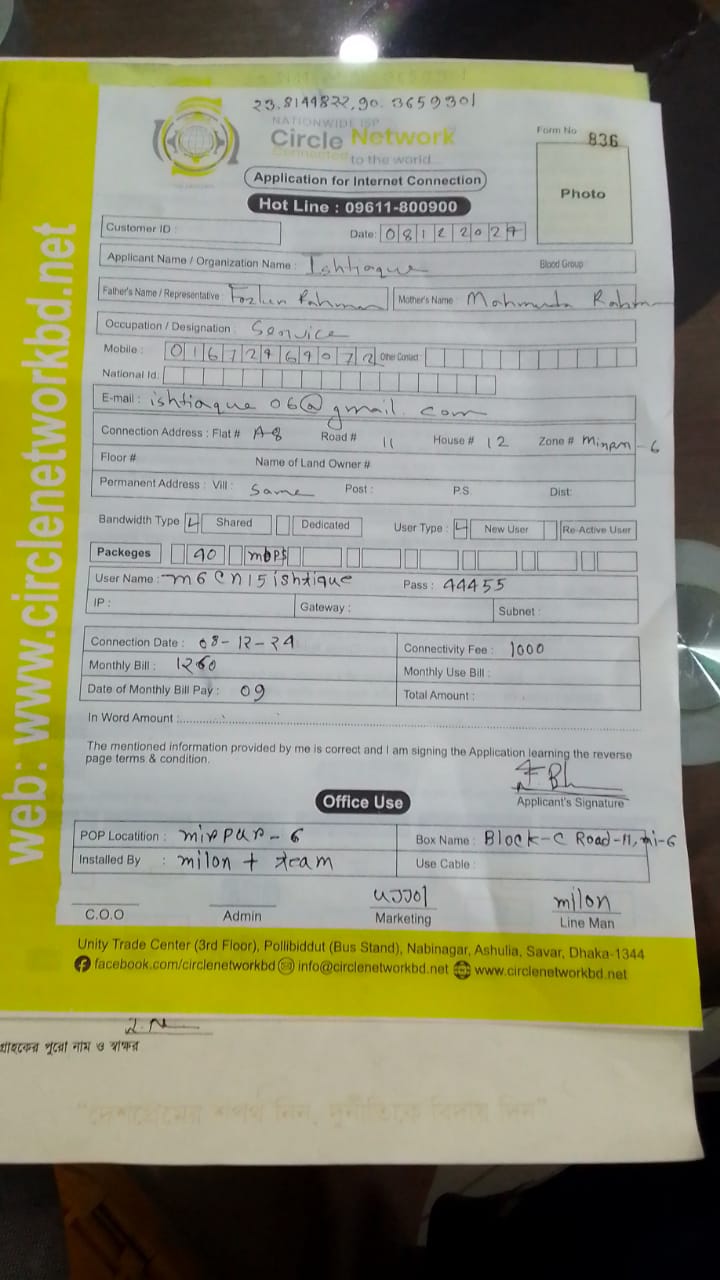 23.8144822,90.3659301
NATIONWIDE ISP
Circle Network
Connected to the world...
Form No 836
Photo
Application for Internet Connection
Hot Line : 09611-800900
Customer ID :
Date: 08122024
Applicant Name / Organization Name : Ishtiaque Blood Group
Father's Name / Representative : Fozlur Rahman Mother's Name : Mahmuda Rahman
Occupation / Designation : Service
Mobile : 01672969072 Other Contact :
National Id:
E-mail : ishtiaque06@gmail.com
Connection Address : Flat # A8 Road # 11 House # 12 Zone # Mirpur-6
Floor # Name of Land Owner #
Permanent Address : Vill : Same Post : P.S. Dist:
Bandwidth Type Shared Dedicated User Type : New User Re-Active User
Packeges 40 mbps
User Name : m6cn15ishtique Pass : 44455
IP : Gateway : Subnet :
Connection Date : 08-12-24 Connectivity Fee : 1000
Monthly Bill : 1260 Monthly Use Bill :
Date of Monthly Bill Pay : 09 Total Amount :
In Word Amount :
The mentioned information provided by me is correct and I am signing the Application learning the reverse
page terms & condition.
Applicant's Signature
Office Use
POP Locatition : mirpur-6 Box Name : Block-C Road-11, mi-6
Installed By : milon + team Use Cable :
C.O.O Admin ujjol Marketing milon Line Man
Unity Trade Center (3rd Floor), Pollibiddut (Bus Stand), Nabinagar, Ashulia, Savar, Dhaka-1344
facebook.com/circlenetworkbd info@circlenetworkbd.net www.circlenetworkbd.net
web: www.circlenetworkbd.net
গ্রাহকের পুরো নাম ও স্বাক্ষর
"দেশপ্রেমের শপথ নিন, দুর্নীতিকে বিদায় দিন"